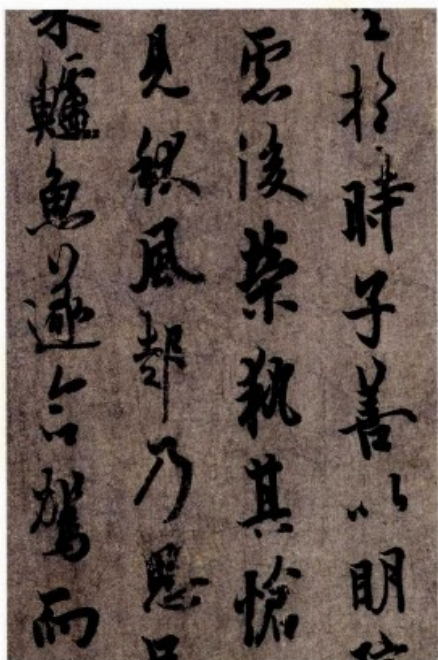 於時子善以明
慮後榮執其愴
見秋風起乃思
鱸魚遂命駕而